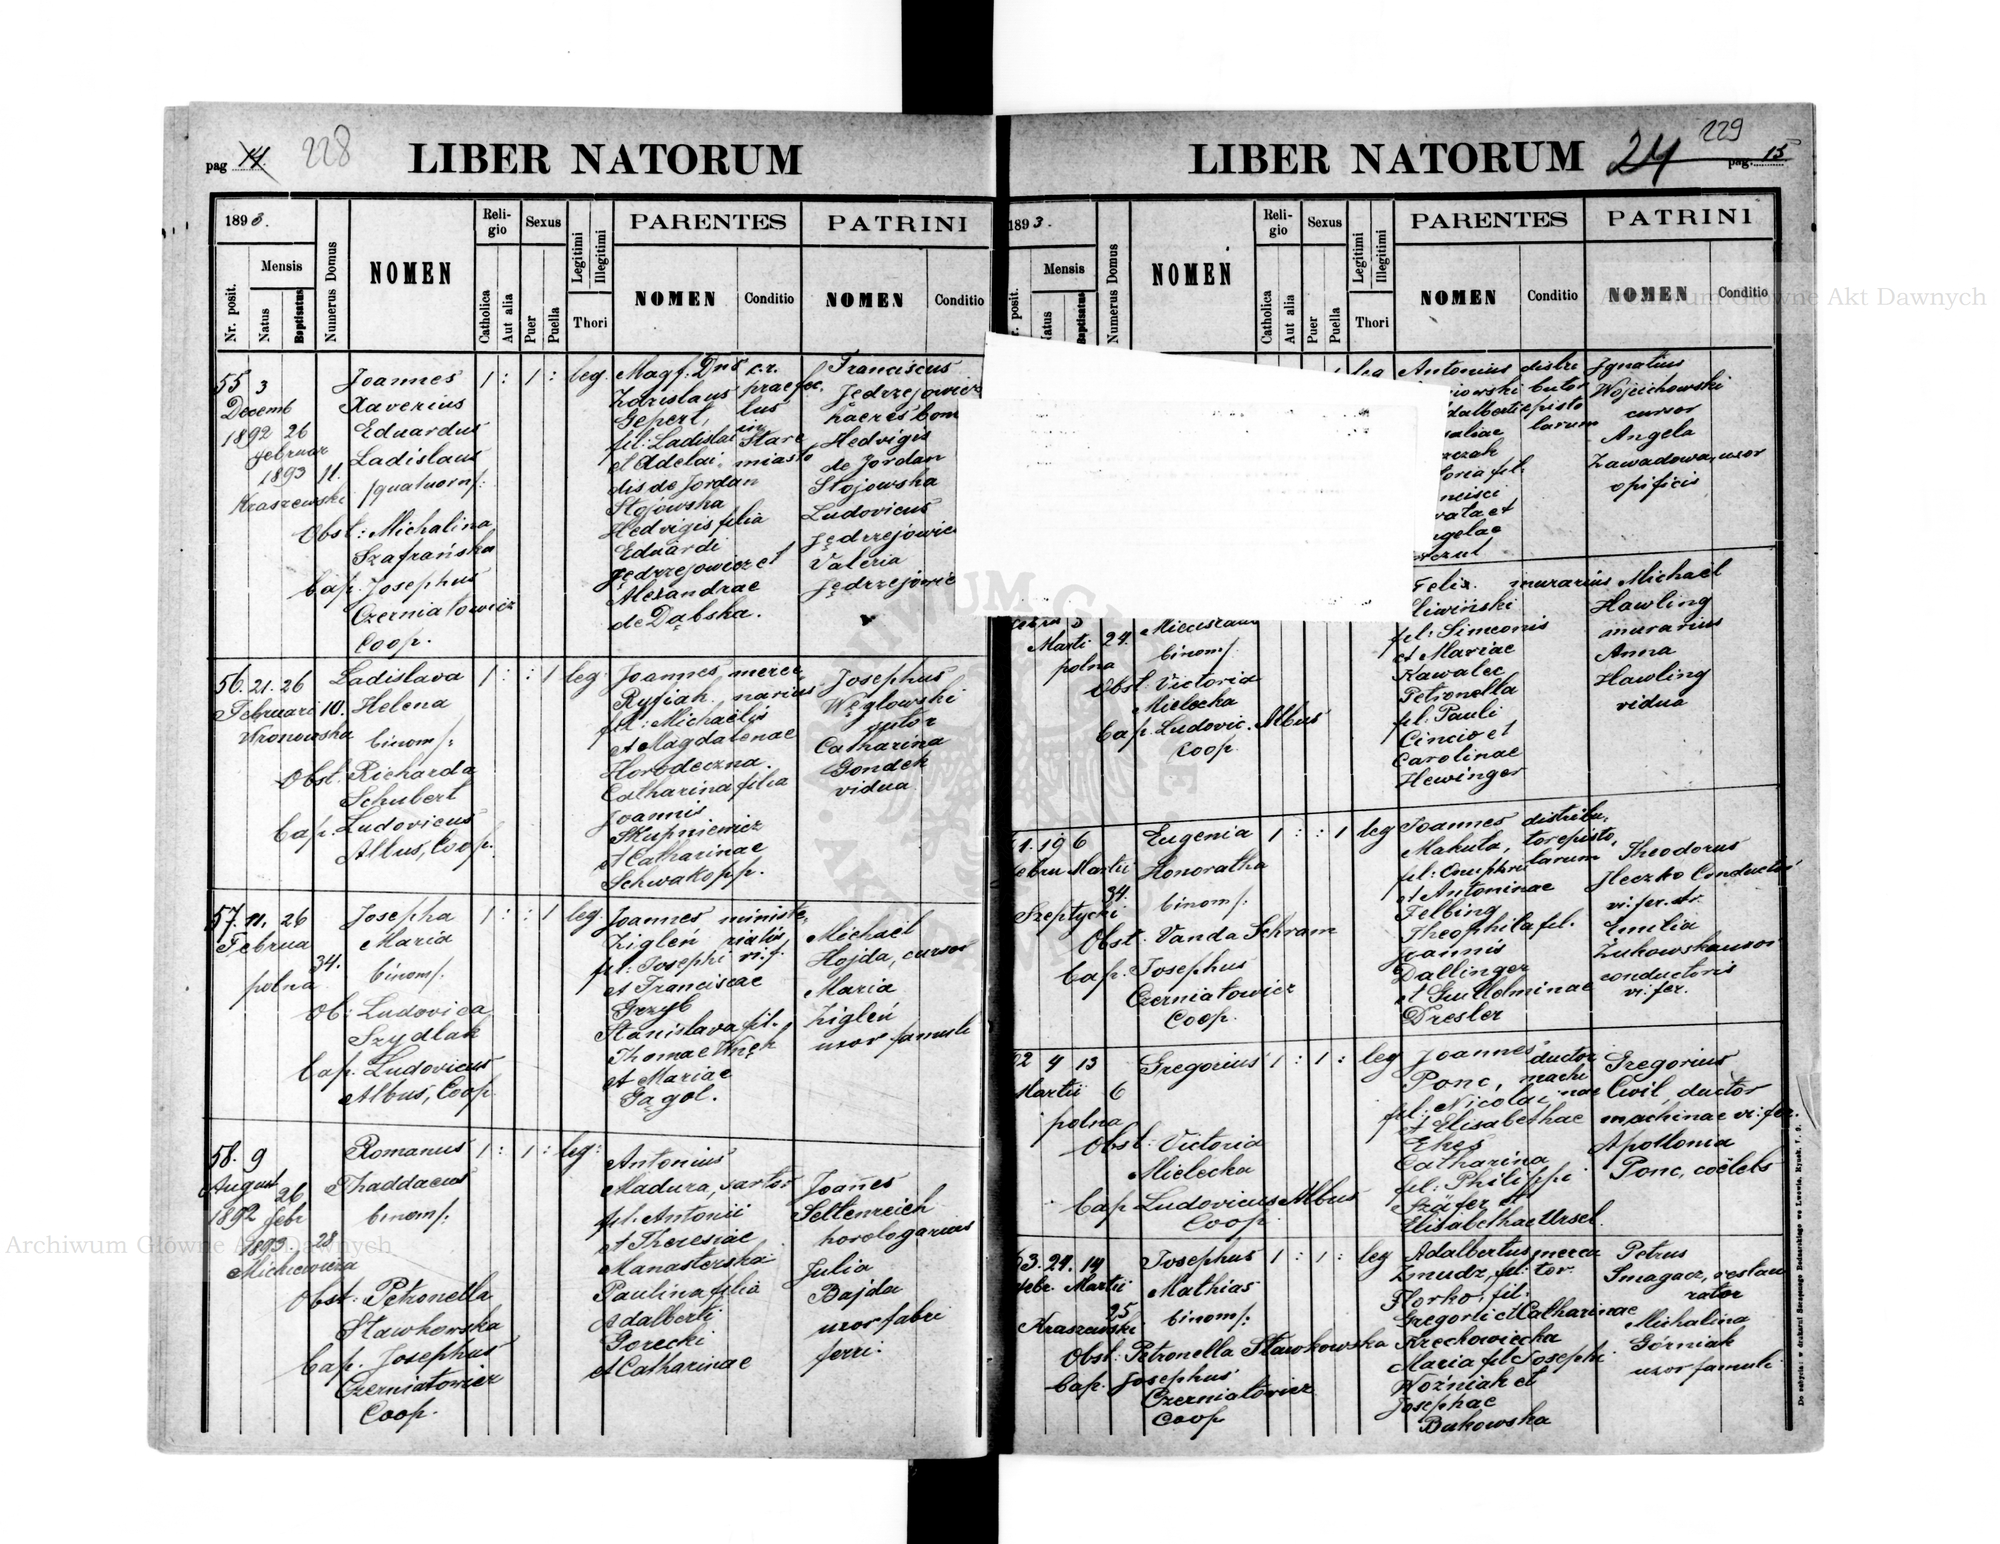 pag 14. 228
LIBER NATORUM
1893.
Nr. posit.
Mensis
Natus
Baptisatus
Numerus Domus
NOMEN
Religio
Catholica
Aut alia
Sexus
Puer
Puella
Legitimi
Illegitimi
Thori
PARENTES
NOMEN
Conditio
PATRINI
NOMEN
Conditio
55 3
Decemb
1892 26
Februar
1893 11.
Kraszewski
Joannes
Xaverius
Eduardus
Ladislaus
/quatuorn/:
Obst: Michalina
Szafrańska
Cap. Josephus
Czerniatowicz
Coop.
1 : 1 : leg.
Magf: Dns c.r.
Zdzislaus praefec
Gepert, tus
fil: Ladislai in Stare
et Adelai- miasto
dis de Jordan
Stojowska
Hedvigis filia
Eduardi
Jędrzejowicz et
Alexandrae
de Dąbska.
Franciscus
Jędrzejowicz
haeres bon
Hedvigis
de Jordan
Stojowska
Ludovicus
Jędrzejowic
Valeria
Jędrzejowic
56. 21. 26
Februari 10.
Wronowska
Ladislava
Helena
binom/:
Obst. Richarda
Schubert
Cap. Ludovicus
Albus, Coop.
1 : : 1 leg.
Joannes merce
Rysiak narius
fil: Michaëlis
et Magdalenae
Horodeczna.
Catharina filia
Joannis
Skupniewicz
et Catharinae
Schwakopp.
Josephus
Węglowski
sutor
Catharina
Gondek
vidua
57. 11. 26
Februa
34.
polna
Josepha
Maria
binom/.
Ob: Ludovica
Szydlak
Cap. Ludovicus
Albus, Coop.
1 : : 1 leg.
Joannes ministe-
Zigleń rialis
fil: Josephi vi.f.
et Franciscae
Grzyb
Stanislava fil.
Thomae Wnęk
et Mariae
Gągol.
Michaël
Hojda, cursor
Maria
Zigleń
uxor famuli
58. 9
August
26
1892 Febr
1893 28
Mickiewicza
Romanus
Thaddaeus
binom/:
Obst: Petronella
Stawkowska
Cap. Josephus
Czerniatowicz
Coop.
1 : 1 : leg:
Antonius
Madura, sartor
fil: Antonii
et Theresiae
Manasterska
Paulina filia
Adalberti
Gorecki
et Catharinae
Joannes
Seltenreich
horologarius
Julia
Bajda
uxor fabri
ferri.
LIBER NATORUM
24 229
pag. 15
1893.
r. posit.
Mensis
Natus
Baptisatus
Numerus Domus
NOMEN
Religio
Catholica
Aut alia
Sexus
Puer
Puella
Legitimi
Illegitimi
Thori
PARENTES
NOMEN
Conditio
PATRINI
NOMEN
Conditio
leg
Antonius distri
iowski butor
dalberti episto
saliae larum
rczak
toria fil
ncisci
vata et
ngelae
Ignatius
Wojciechowski
cursor
Angela
Zawadowa, uxor
opificis
Marti 24.
polna
binom/
Obst. Victoria
Mielecka
Cap. Ludovic. Albus
Coop.
Felix murarius
liwiński
fil: Simeonis
et Mariae
Kawalec
Petronella
fil: Pauli
Cincio et
Carolinae
Hewinger
Michaël
Hawling
murarius
Anna
Hawling
vidua
1. 19 6
ebru Martii
34.
Szeptycki
Eugenia
Honoratha
binom/:
Obst. Vanda Schram
Cap. Josephus
Czerniatowicz
Coop.
1 : : 1 leg
Joannes distribu,
Makuta, tor episto,
fil: Onuphrii larum
et Antoninae
Felbing
Theophila fil.
Joannis
Dallinger
et Guillelminae
Dresler
Theodorus
Heczko Conductor
vi. fer. str.
Emilia
Żukowska uxor
conductoris
vi: fer.
62 4 13
Martii 6
polna
Gregorius
Obst. Victoria
Mielecka
Cap Ludovicus Albus
Coop.
1 : 1 : leg
Joannes ductor
Ponc, machi
fil: Nicolai nae
et Elisabethae
Ekes
Catharina
fil: Philippi
Szäfer et
Elisabethae Ursel.
Gregorius
Cwil, ductor
machinae vi: fer.
Apollonia
Ponc, coelebs
63. 24. 14
Febr. Martii
25
Kraszewski
Josephus
Mathias
binom/:
Obst: Petronella Stawkowska
Cap. Josephus
Czerniatowicz
Coop
1 : 1 : leg
Adalbertus merca
Zmudz, fil: tor.
Florko, fil.
Gregorii et Catharinae
Krechowiecka
Maria fil Josephi
Woźniak et
Josephae
Bukowska
Petrus
Smagacz, restau
rator
Michalina
Górniak
uxor famuli
Do nabycia: w drukarni Szczęsnego Bednarskiego we Lwowie, Rynek, l. 9.
Archiwum Główne Akt Dawnych
Archiwum Główne Akt Dawnych
ARCHIWUM GŁÓWNE AKT DAWNYCH